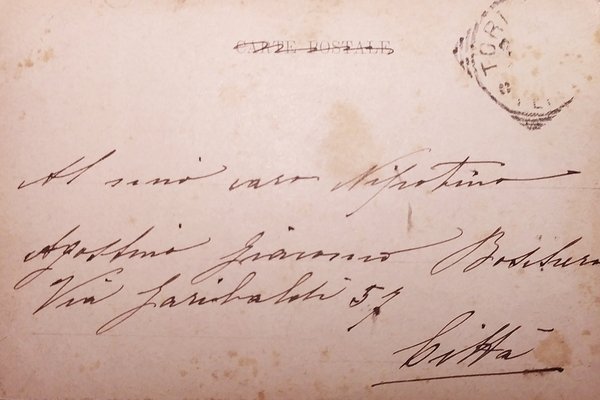 CARTE POSTALE
TOR
Al suo caro Nipotino
Agostino Giacomo
Via Garibaldi 57
Città